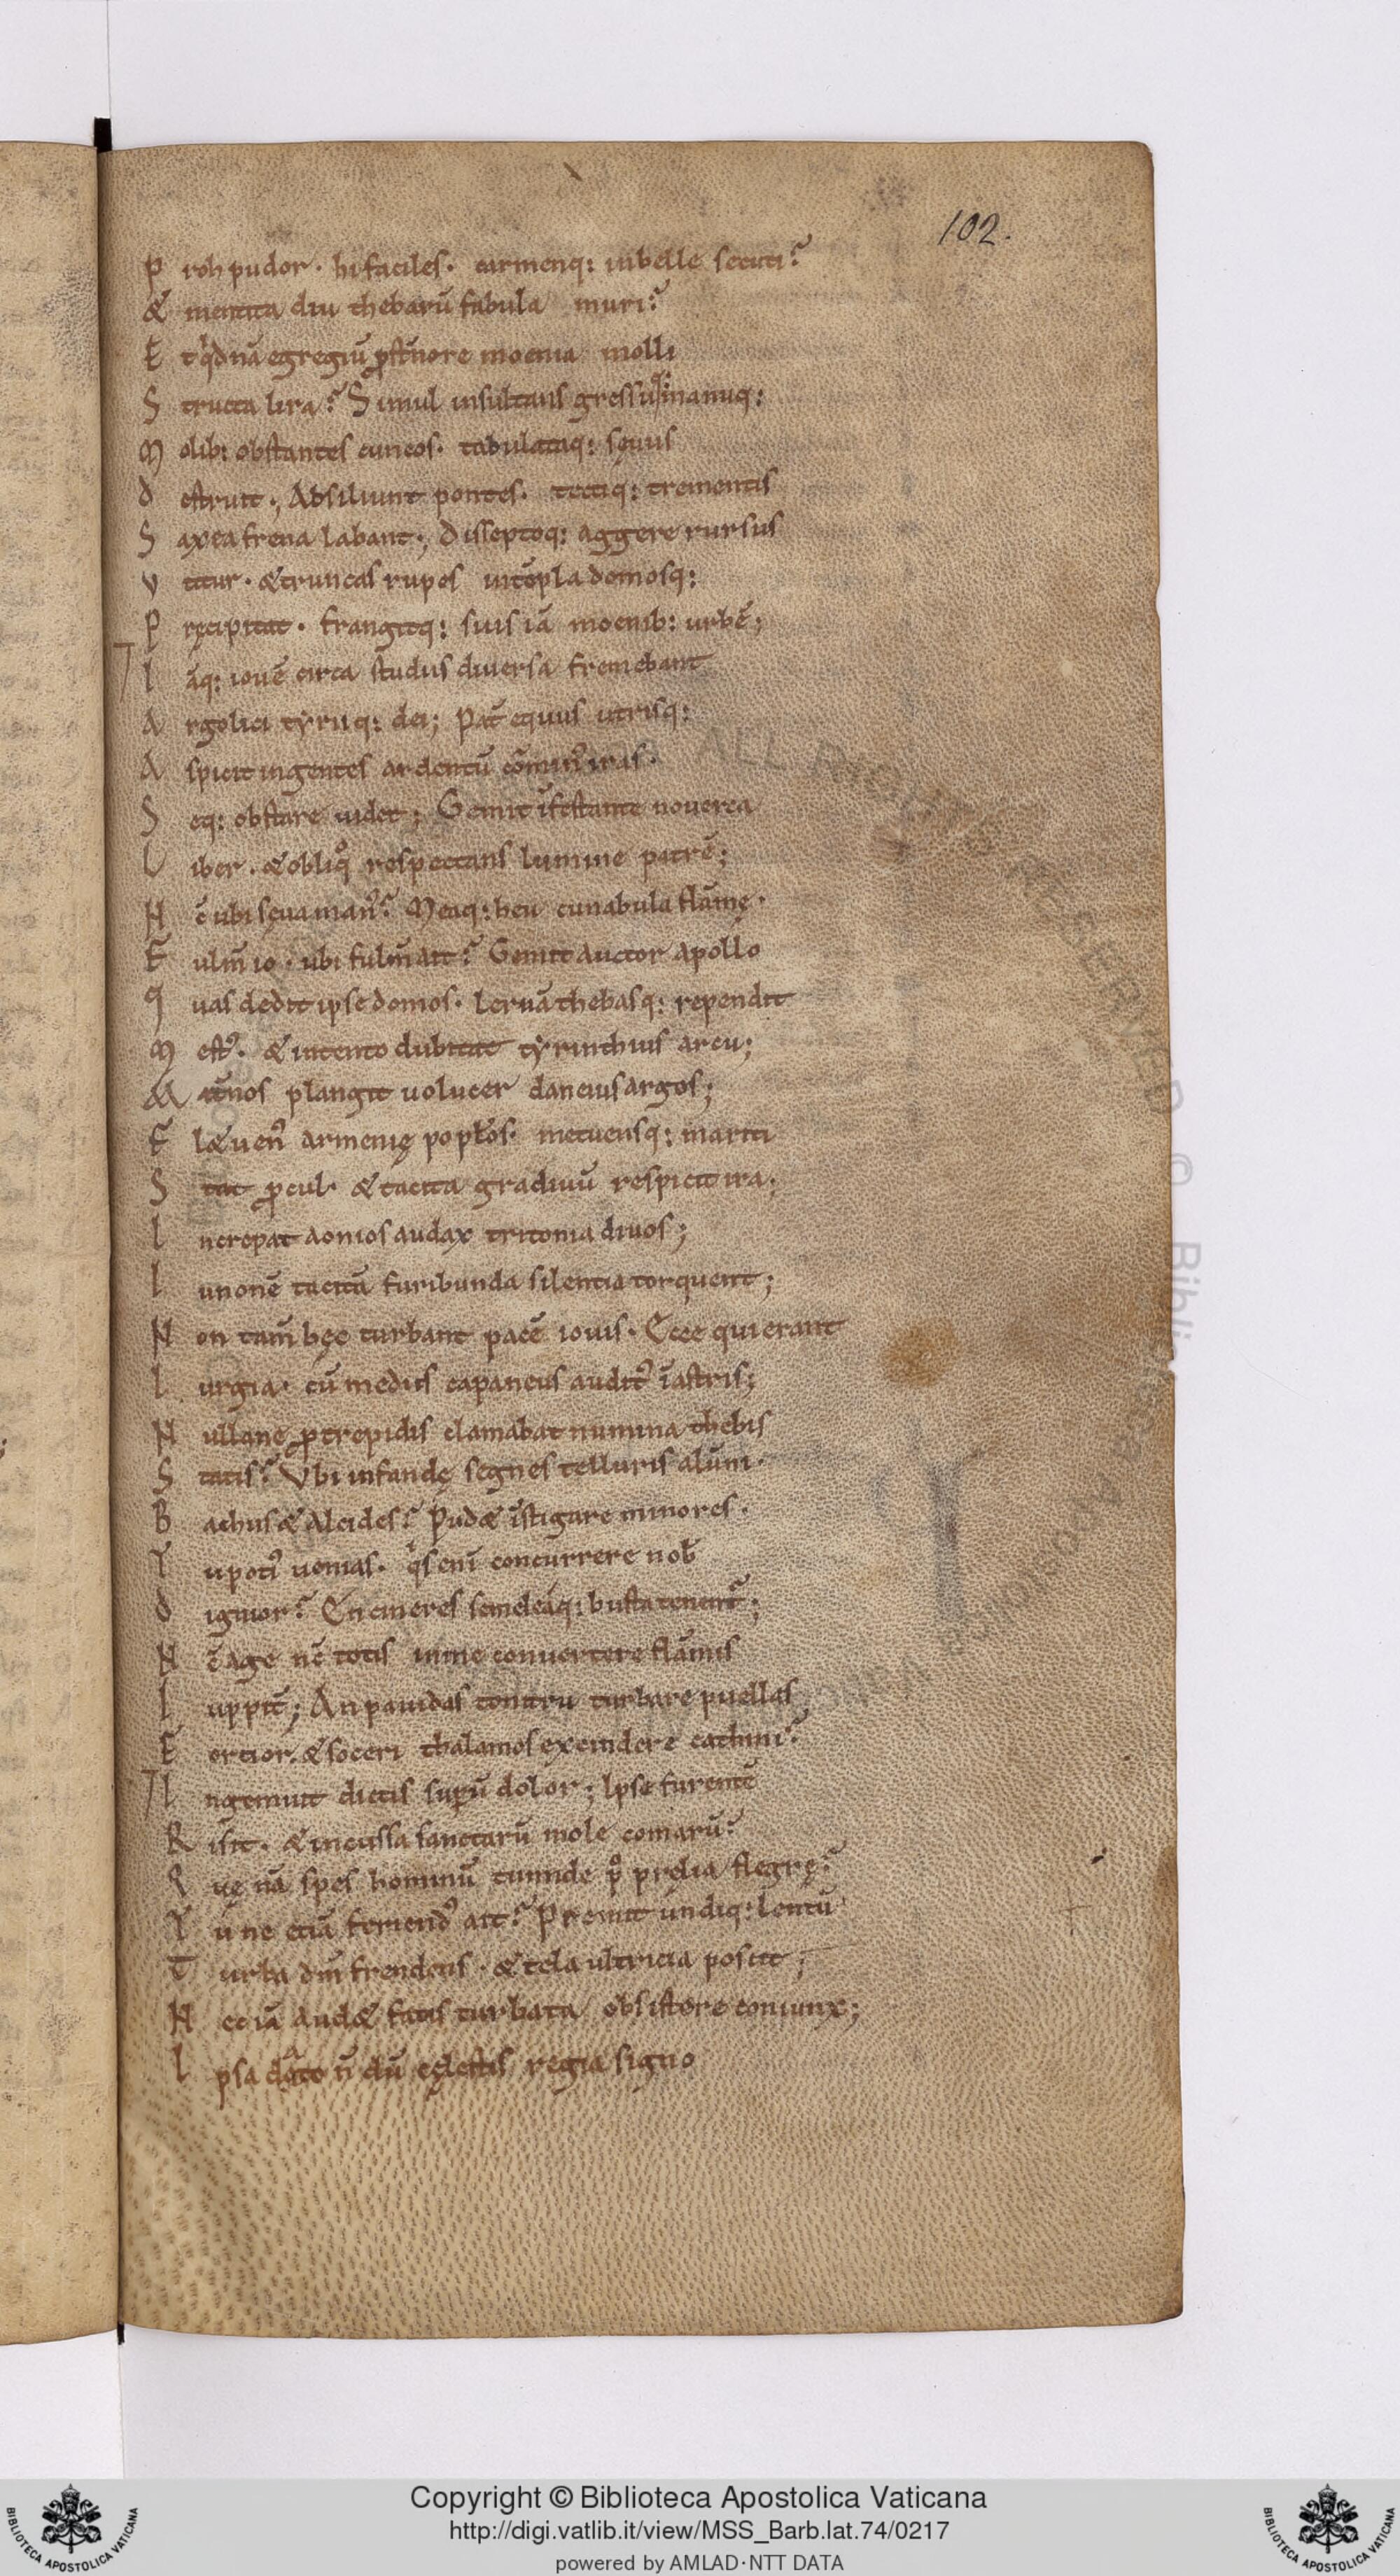 102.
P roh pudor· hi faciles· carmenq: inbelle secuti?
& mentita diu thebarū fabula muri?
E t q̇dnā egregiū ꝓsťnore moenia molli
S tructa lira? Simul insultans gressu manuq:
M olib: obstantes cuneos· tabulataq: sęuus
D estruit·, Absiliunt pontes· tectiq: trementis
S axea frena labant·, Disseptoq: aggere rursus
V titur· & truncas rupes intēpla domosq:
P ręcipitat· frangitq: suis iā moenib: urbē;
I āq: iouē circa studiis diuersa fremebant
A rgolici tyriiq: dei; Pat̄ equus utrisq:
A spicit ingentes ardentū comin᾽ iras·
S eq: obstare uidet; Gemit īfestante nouerca
L iber· & obliqͦ respectans lumine patrē;
N ē ubi sęua man᾽? Meaq: heu cunabula flāmę·
F ulm̄ io· ubi fulm̄ ait? Gemit auctor apollo
Q uas dedit ipse domos· lernā thebasq: rependit
M est᾽· & intento dubitat tyrinthius arcu;
M at̄nos plangit uolucer daneius argos;
F l& uen᾽ armenię poplos· metuensq: mariti
S tat ꝓcul· & tacita gradiuū respicit ira;
I ncrepat aonios audax tritonia diuos;
I unonē tacitā furibunda silentia torquent;
N on tam̄ hęc turbant pacē iouis· Ecce quierant
I urgia· cū mediis capaneus audit᾽ īastris;
N ullane ꝓ trepidis clamabat numina thebis
S tatis? Vbi infandę segnes telluris alūni·
B achus & Alcides? Pud& īstigare minores·
T u poti᾽ uenias· q̇s enī concurrere nob̄
D ignior? En cineres semeleāq: busta tenent᾽;
N ē age nē totis inme conuertere flāmis
I uppit̄; An pauidas tonitru turbare puellas
F ortior· & soceri thalamos excindere cathmi?
I ngemuit dictis supū dolor; Ipse furentē
R isit· & incussa sanctarū mole comarū?
Q uę nā spes hominū tumide pͦ pręlia flegrę?
T u ne etiā feriend᾽ ait? Premit undiq: lentū
T urba dm̄ frendens· & tela ultricia poscit;
N ec iā aud& fatis turbata obsistere coniunx;
I psa dato n̄ dū cęlestis regia signo
Copyright © Biblioteca Apostolica Vaticana
http://digi.vatlib.it/view/MSS_Barb.lat.74/0217
powered by AMLAD·NTT DATA